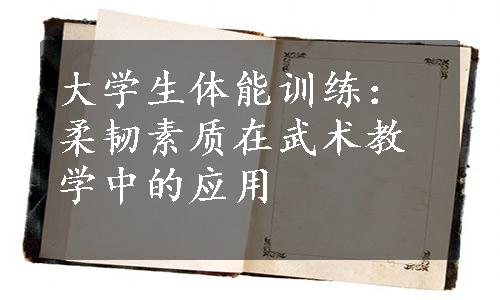 大学生体能训练：
柔韧素质在武术教
学中的应用